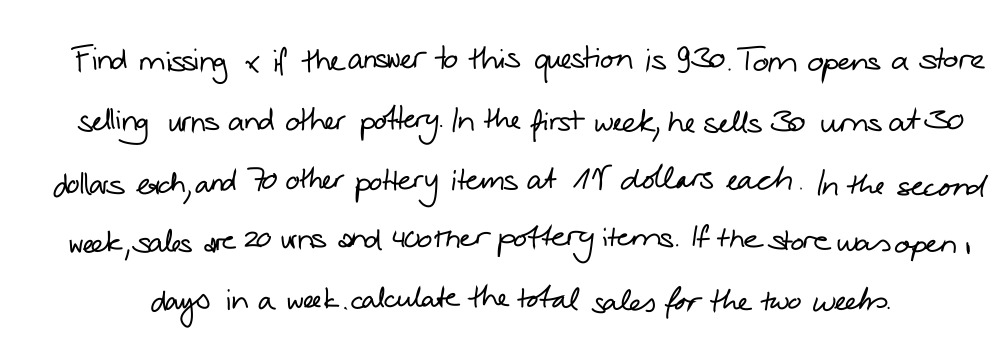 Find missing x if the answer to this question is 930. Tom opens a store
selling urns and other pottery. In the first week, he sells 30 urns at 30
dollars each, and 70 other pottery items at dollars each. In the second
week, sales are 20 urns and 40 other pottery items. If the store was open
days in a week. calculate the total sales for the two weeks.